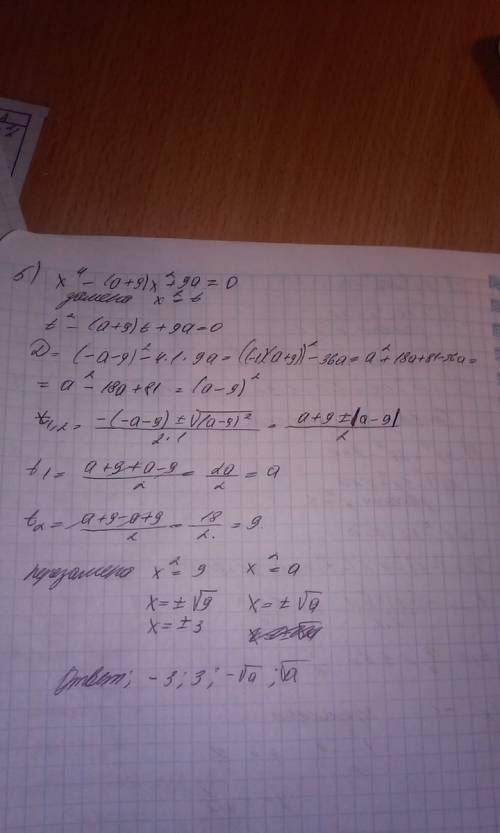 б) x⁴ - (a+9)x²+9a=0
замена x²=t
t²-(a+9)t+9a=0
D= (-a-9)²-4·1·9a=((-1)(a+9))²-36a=a²+18a+81-36a=
= a²-18a+81 = (a-9)²
t1,2= (-(-a-9)±√(a-9)²)/(2·1) = (a+9±|a-9|)/2
t1= (a+9+a-9)/2 = 2a/2 = a
t2= (a+9-a+9)/2 = 18/2 = 9.
x²=9 x²=a
x=±√9 x=±√a
x=±3
Ответ; -3; 3; -√a; √a